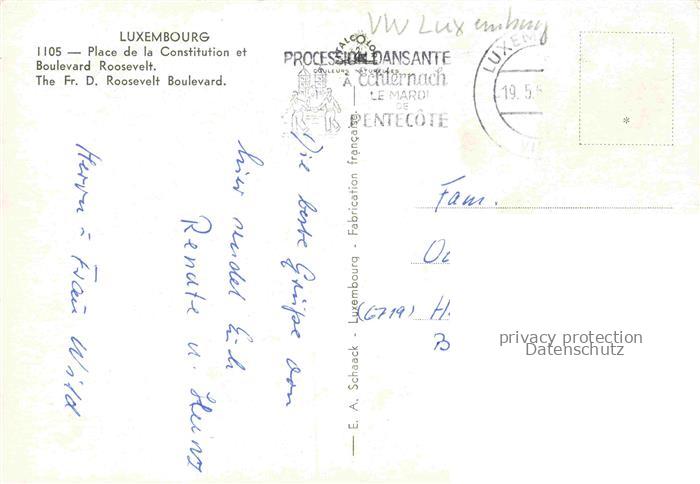 LUXEMBOURG
1105 — Place de la Constitution et
Boulevard Roosevelt.
The Fr. D. Roosevelt Boulevard.
VW Luxemburg
PROCESSION DANSANTE
À Echternach
LE MARDI
DE
PENTECÔTE
LUXEM
19. 5. 5
Die beste Grüße von
hier sendet Euch
Renate u. Heinz
Herrn & Frau Wild
E. A. Schaack - Luxembourg - Fabrication française
Fam.
(6719) H.
B
privacy protection
Datenschutz
*